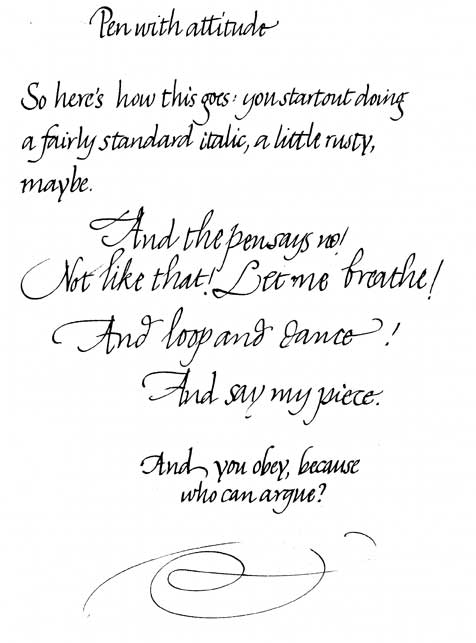 Pen with attitude
So here's how this goes: you start out doing
a fairly standard italic, a little rusty,
maybe.
And the pen says no!
Not like that! Let me breathe!
And loop and dance!
And say my piece.
And you obey, because
who can argue?